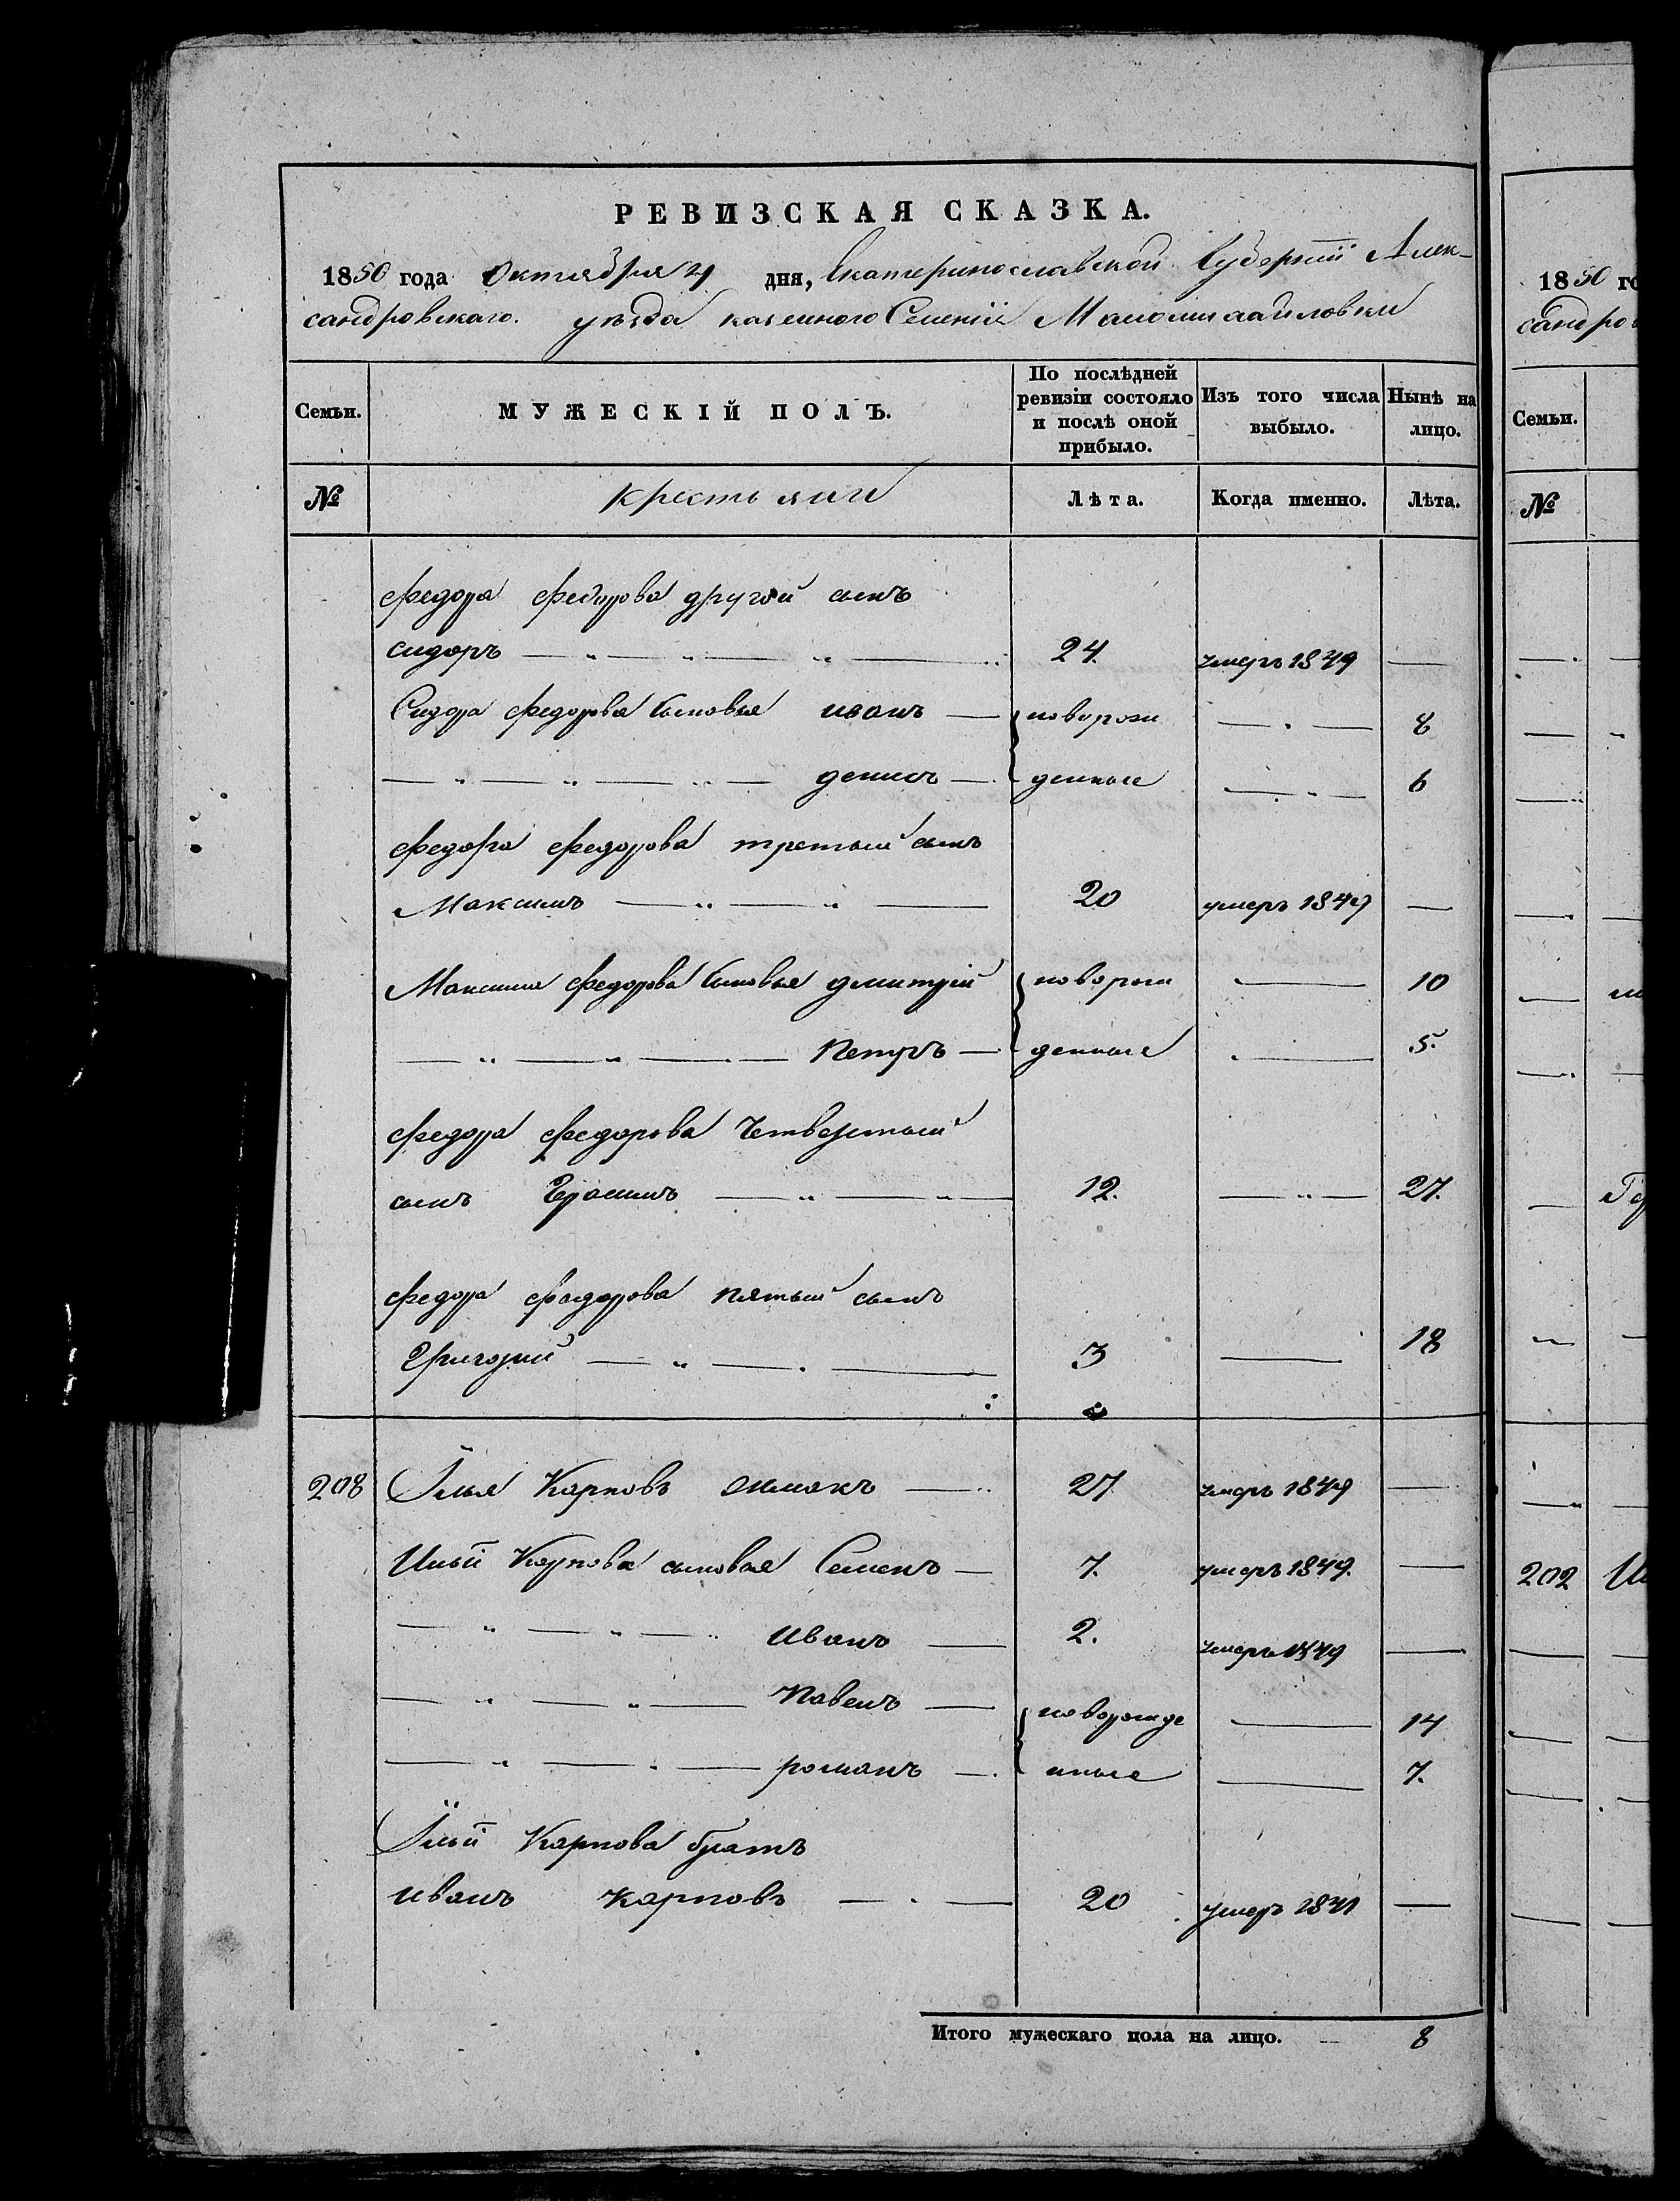 РЕВИЗСКАЯ СКАЗКА.
1850 года Октября 21 дня, Екатеринославской Губерніи Алек-
сандровскаго. уѣзда казенного Селенія Маломихайловки
Семьи. МУЖЕСКІЙ ПОЛЪ. По послѣдней ревизіи состояло и послѣ оной прибыло. Изъ того числа выбыло. Нынѣ на лицо.
№ Крестьяни Лѣта. Когда именно. Лѣта.
Федора Федорова другой сынъ
сидоръ 24. умеръ 1849 —
Сидора Федорова Сыновья иванъ — новорож — 8
денисъ — денные — 6
Федора Федорова третьий сынъ
Максимъ 20 умеръ 1849 —
Максима Федорова Сыновья дмитрій новорож — 10
Петръ — денные — 5.
Федора Федорова Четвертый
сынъ Герасимъ 12. — 27.
Федора Федорова пятый сынъ
Григорий 3 — 18
208 Илья Карповъ 27 умеръ 1849 —
Ильи Карпова сыновья Семенъ — 7. умеръ 1849. —
Иванъ — 2. умеръ 1849 —
Павелъ — новорожде — 14
романъ — нные — 7.
Ильи Карпова братъ
иванъ карповъ — 20 умеръ 1841 —
Итого мужескаго пола на лицо. — 8
1850 го
сандров
Семьи.
№
202 И